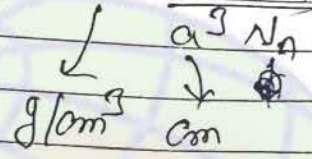 a³ N_A
g/cm³ cm